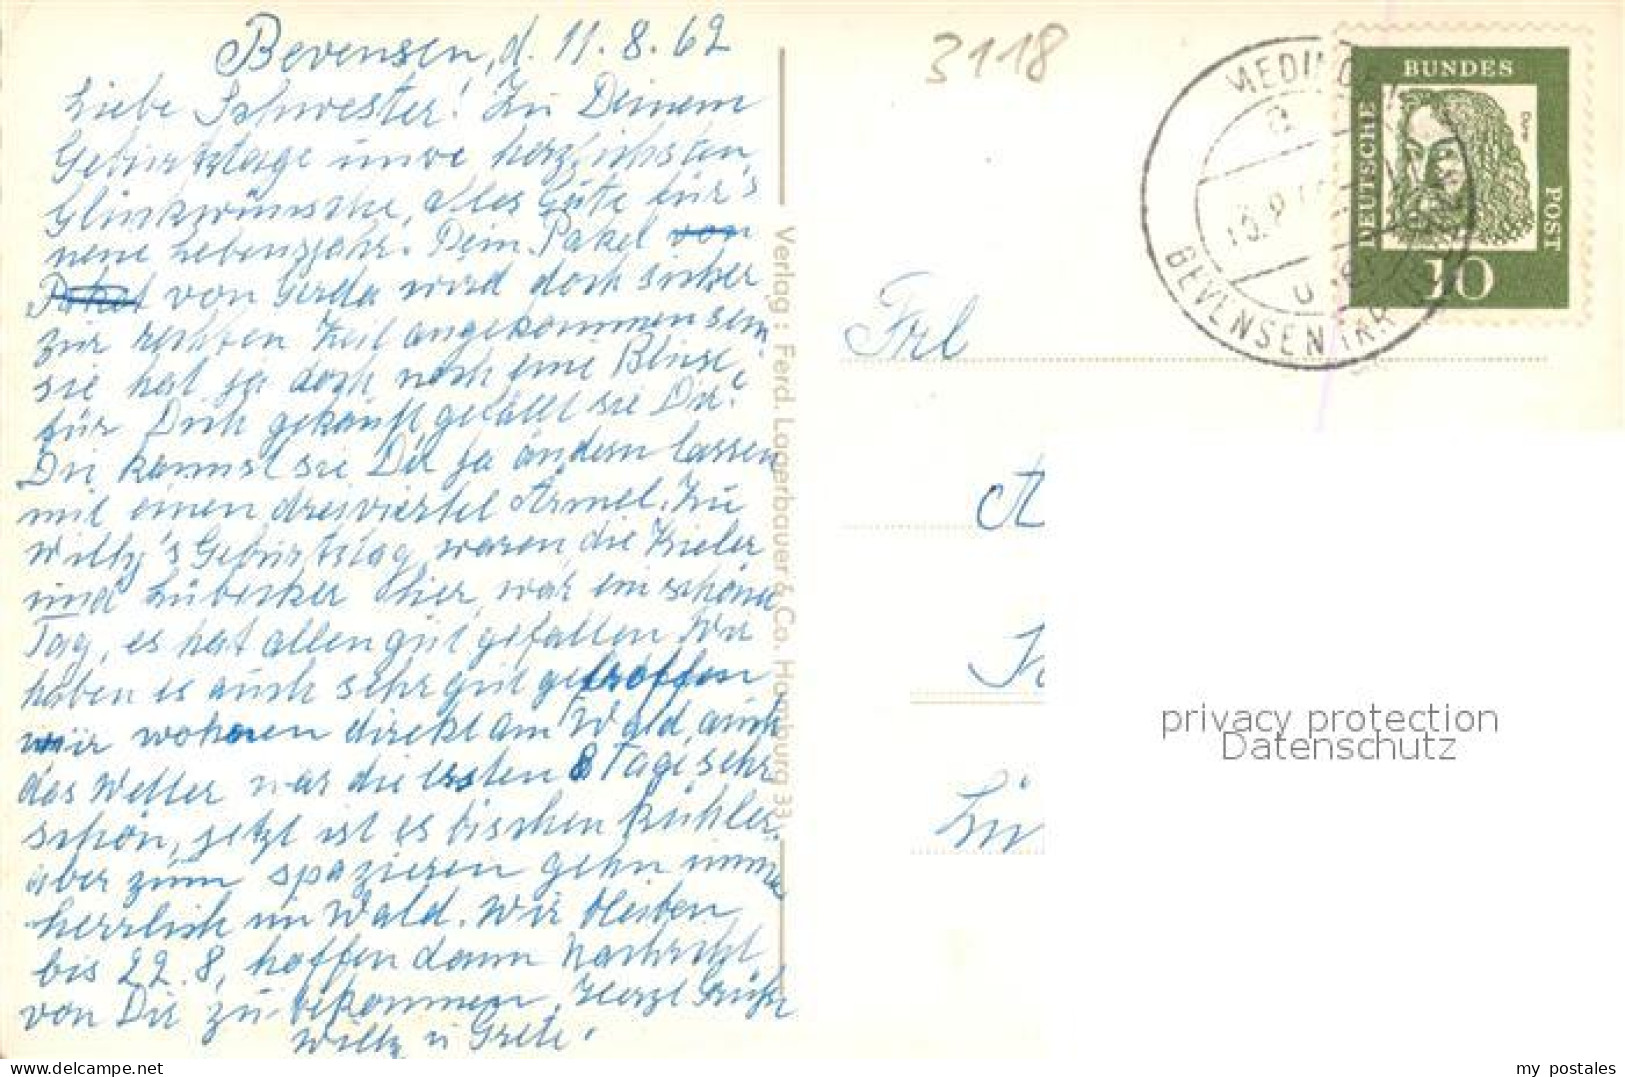 Bevensen, d. 11.8.62
Liebe Schwester! Zu Deinem
Geburtstage unsre herzlichsten
Glückwünsche, Alles Gute für's
neue Lebensjahr. Dein Paket von
Paket von Gerda wird doch sicher
zur rechten Zeit angekommen sein,
sie hat ja doch noch eine Bluse
für Dich gekauft gefällt sie Dir?
Du kannst sie Dir ja ändern lassen
mit einen dreiviertel Ärmel. Zu
Willy's Geburtstag waren die Kieler
und Lübecker hier, war ein schöner
Tag, es hat allen gut gefallen. Wir
haben es auch sehr gut getroffen
wir wohnen direkt am Wald, auch
das Wetter war die ersten 8 Tage sehr
schön, jetzt ist es bischen kühler,
aber zum spazieren gehn immer
herrlich im Wald. Wir bleiben
bis 22.8, hoffen dann Nachricht
von Dir zu bekommen. Herzl Grüße
Willy u Grete.
Verlag: Ferd. Lagerbauer & Co. Hamburg 33
3118
BEVENSEN
DEUTSCHE
BUNDES
POST
10
Frl
A
Lü
privacy protection
Datenschutz
the-post.eu
my postales